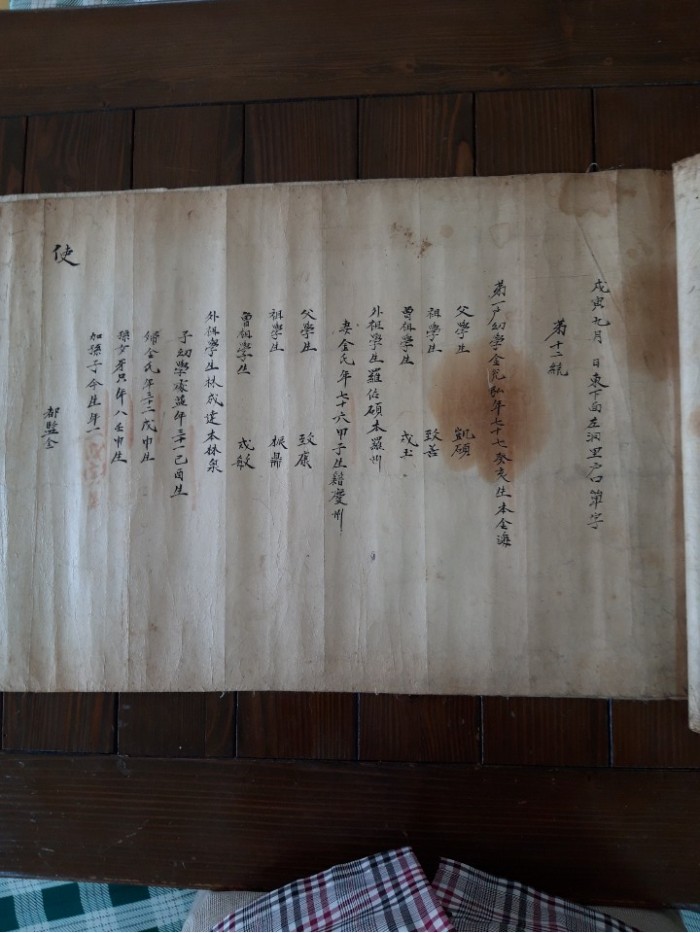 戊寅九月 日東下面左洞里戶口單字
第十二統
第一戶幼學金 年七十七癸亥生本金海
父學生 凱碩
祖學生 致善
曾祖學生 戎玉
外祖學生羅佐碩本羅州
妻金氏年七十六甲子生籍慶州
父學生 致康
祖學生 振鼎
曾祖學生
外祖學生林成達本林泉
子幼學 年三十一己酉生
婦金氏年三十二戊申生
孫女 年八壬申生
加孫子今生年一
都監金
使